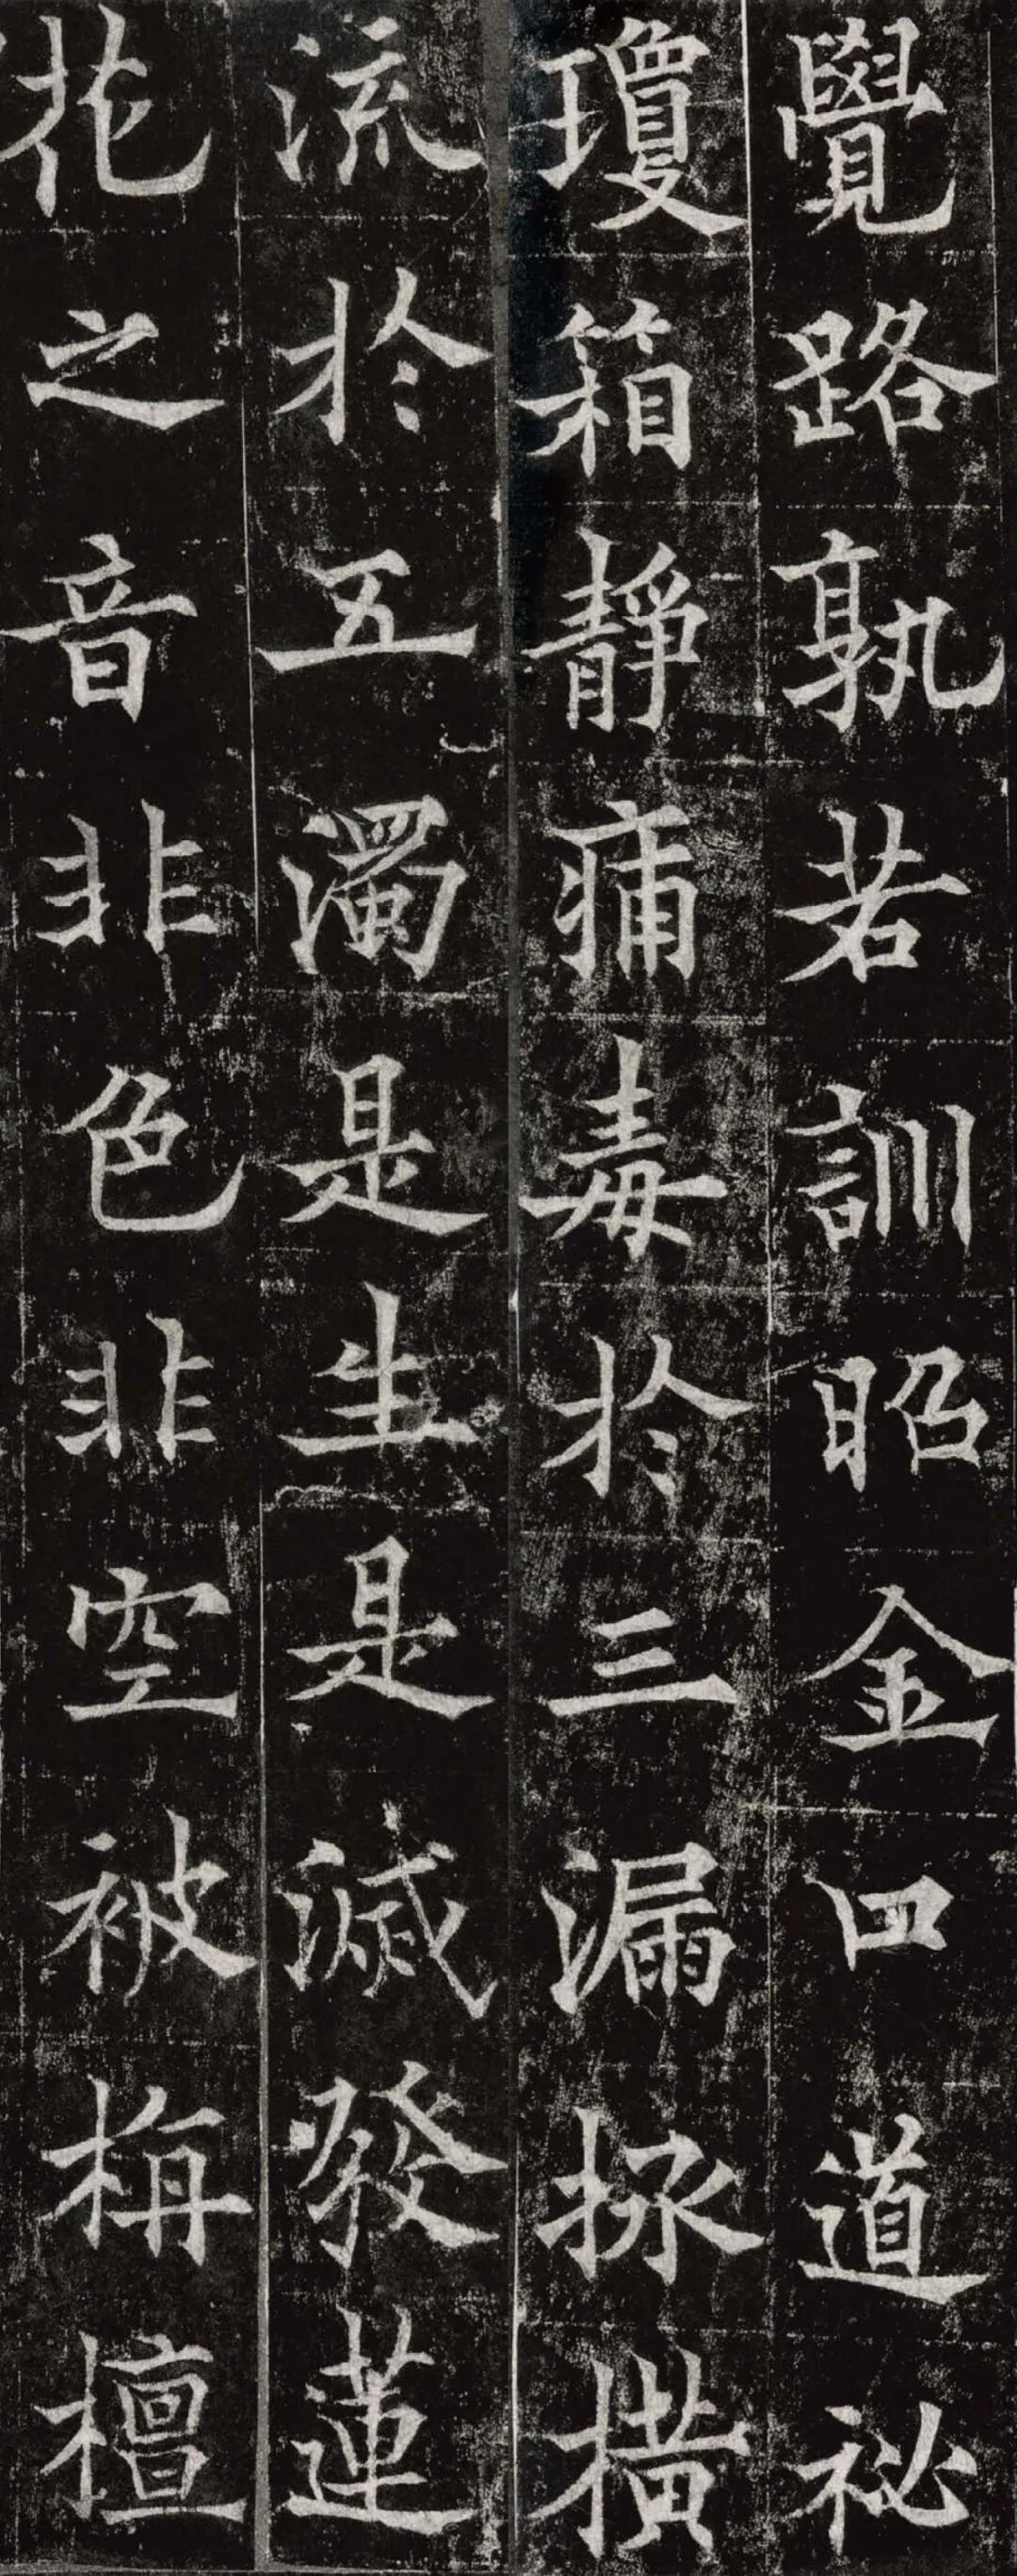 覺路孰若訓昭金口道祕
瓊箱靜痡毒於三漏拯橫
流於五濁是生是滅發蓮
花之音非色非空被栴檀